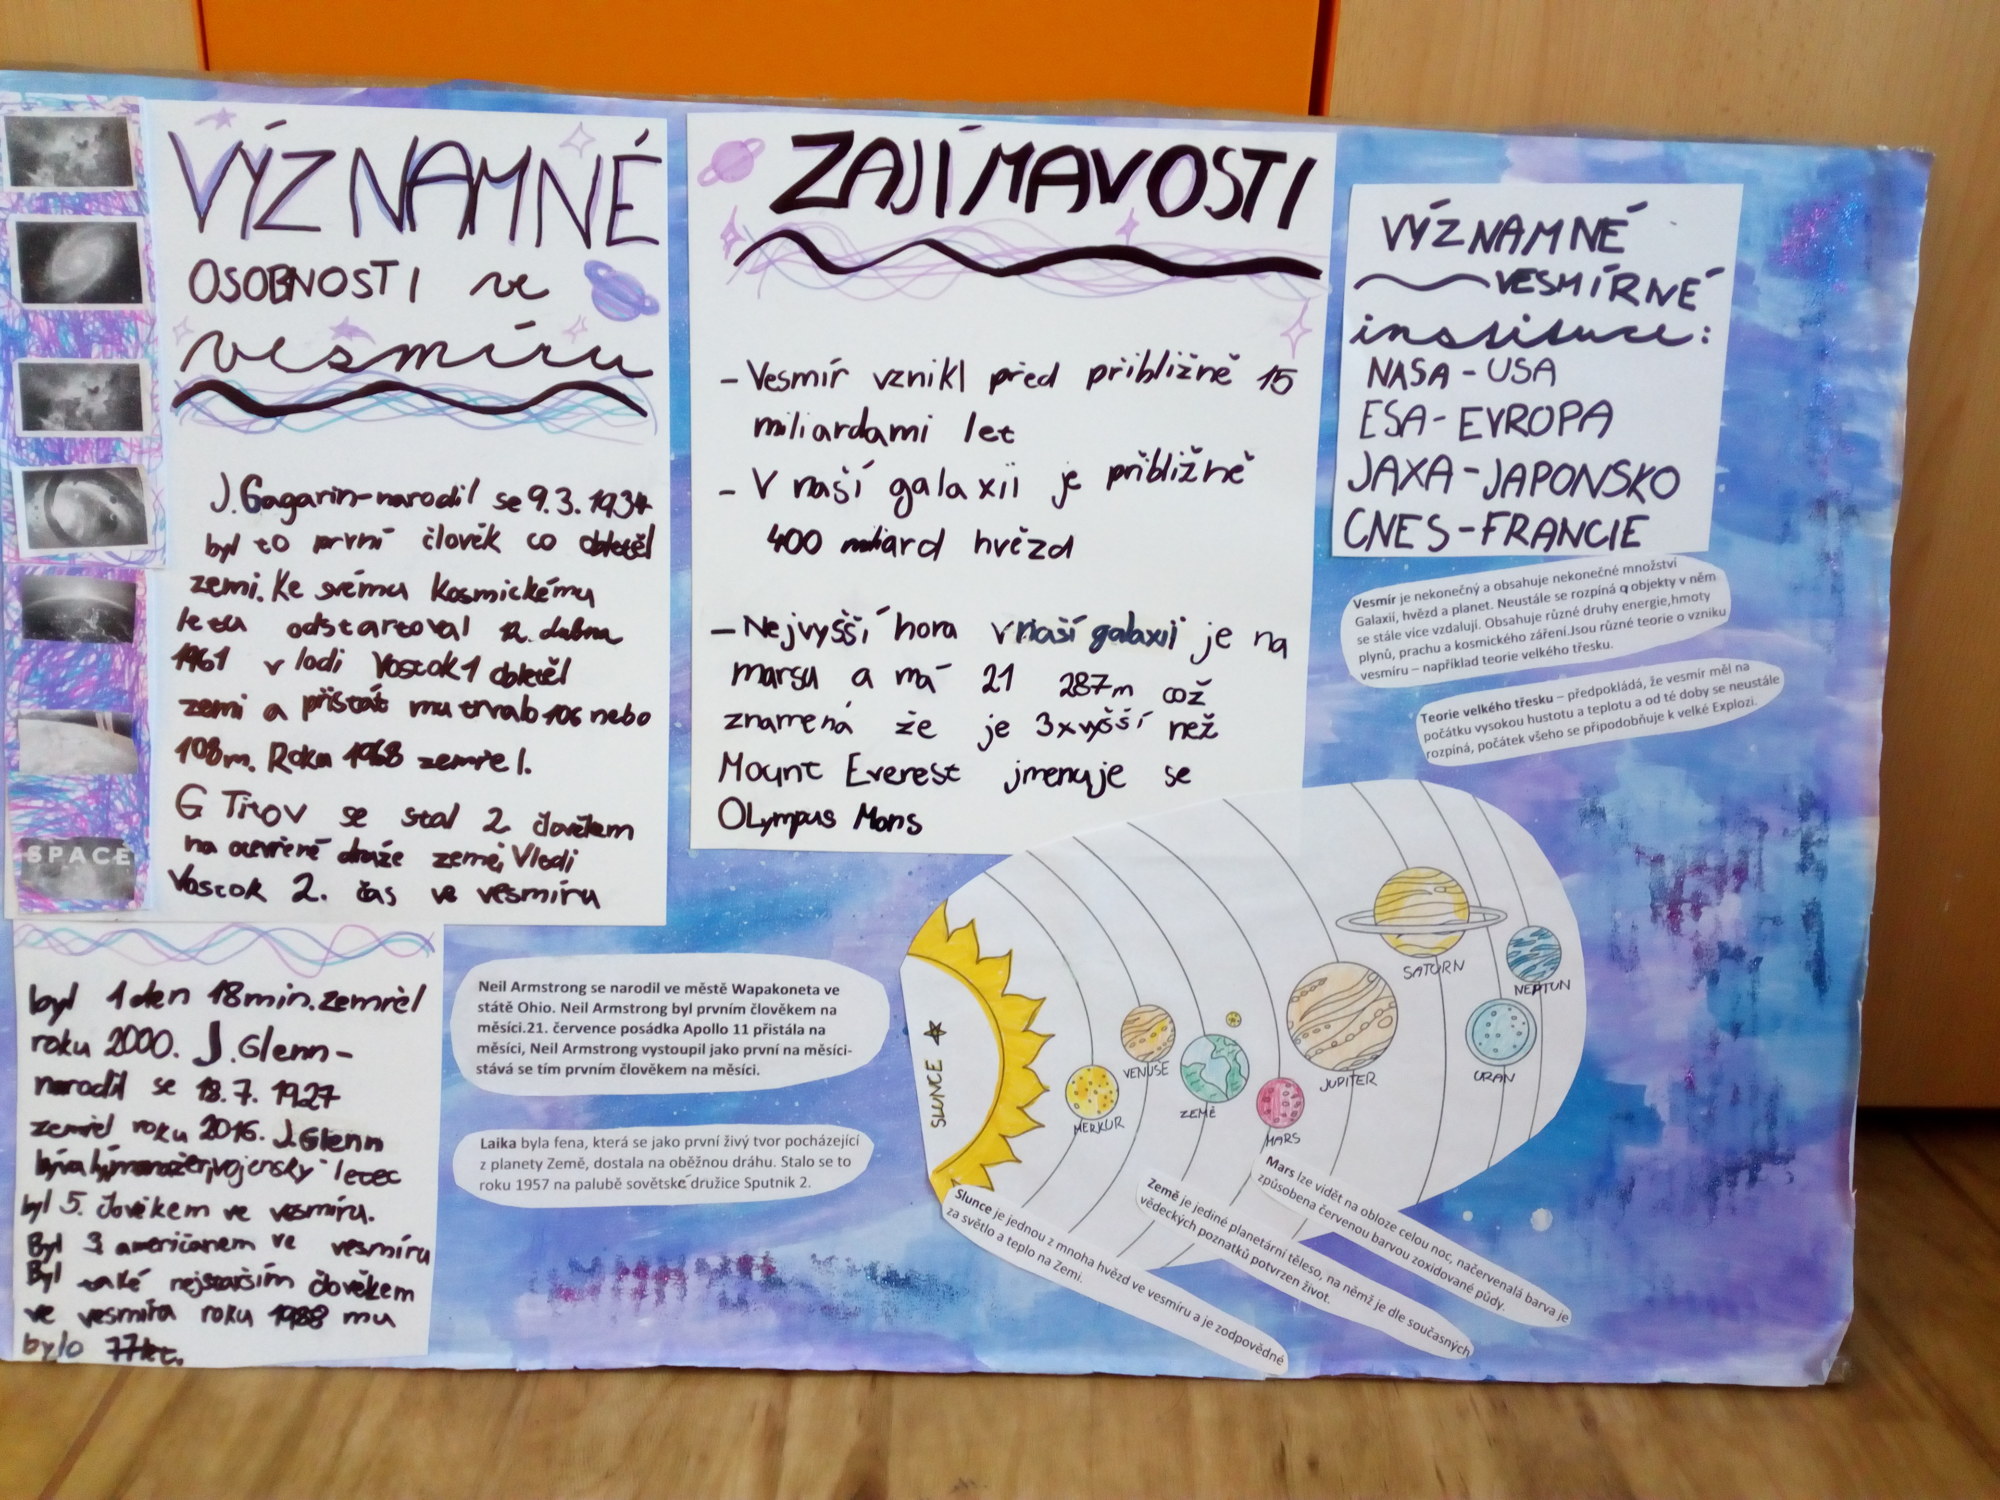 VÝZNAMNÉ
OSOBNOSTI ve
vesmíru
J. Gagarin-narodil se 9.3.1934
byl to první člověk co obletěl
zemi. Ke svému kosmickému
letu odstartoval 12. dubna
1961 v lodi Vostok 1 obletěl
zemi a přistát mu trvalo 106 nebo
108m. Roku 1968 zemřel.
G Titov se stal 2 človekem
na oběžné dráze země, Vlodi
Vostok 2. čas ve vesmíru
byl 1 den 18 min. zemřel
roku 2000. J. Glenn-
narodil se 18.7. 1927
zemřel roku 2016. J. Glenn
vojenský letec
byl 5. človekem ve vesmíru.
Byl 3 američanem ve vesmíru
Byl také nejstarším člověkem
ve vesmíru roku 1988 mu
bylo 77 let.
SPACE
ZAJÍMAVOSTI
- Vesmír vznikl před přibližně 15
miliardami let
- V naší galaxii je přibližně
400 miliard hvězd
- Nejvyšší hora v naší galaxii je na
marsu a má 21 287m což
znamená že je 3x vyšší než
Mount Everest jmenuje se
OLympus Mons
VÝZNAMNÉ
VESMÍRNÉ
instituce:
NASA - USA
ESA - EVROPA
JAXA - JAPONSKO
CNES - FRANCIE
Vesmír je nekonečný a obsahuje nekonečné množství
Galaxií, hvězd a planet. Neustále se rozpíná q objekty v něm
se stále více vzdalují. Obsahuje různé druhy energie,hmoty
plynů, prachu a kosmického záření.Jsou různé teorie o vzniku
vesmíru – například teorie velkého třesku.
Teorie velkého třesku – předpokládá, že vesmír měl na
počátku vysokou hustotu a teplotu a od té doby se neustále
rozpíná, počátek všeho se připodobňuje k velké Explozi.
Neil Armstrong se narodil ve městě Wapakoneta ve
státě Ohio. Neil Armstrong byl prvním člověkem na
měsíci.21. července posádka Apollo 11 přistála na
měsíci, Neil Armstrong vystoupil jako první na měsíci-
stává se tím prvním člověkem na měsíci.
Laika byla fena, která se jako první živý tvor pocházející
z planety Země, dostala na oběžnou dráhu. Stalo se to
roku 1957 na palubě sovětské družice Sputnik 2.
SLUNCE
MERKUR
VENUŠE
ZEMĚ
MARS
JUPITER
SATURN
URAN
NEPTUN
Slunce je jednou z mnoha hvězd ve vesmíru a je zodpovědné
za světlo a teplo na Zemi.
Země je jediné planetární těleso, na němž je dle současných
vědeckých poznatků potvrzen život.
Mars lze vidět na obloze celou noc, načervenalá barva je
způsobena červenou barvou zoxidované půdy.